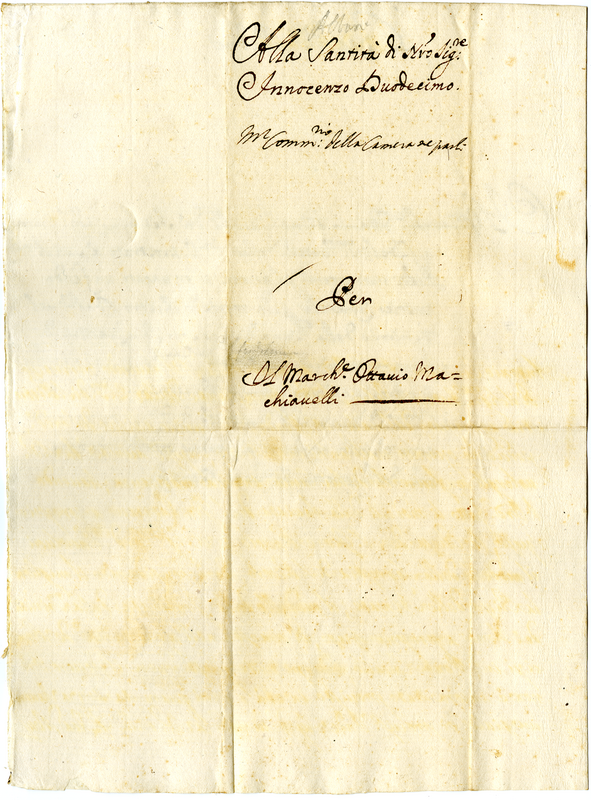 Alla Santità di Nro Sig.re
Innocenzo Duodecimo.
Mr Comm.rio della Camera ne parli
Per
Il March.e Ottauio Ma=
chiauelli